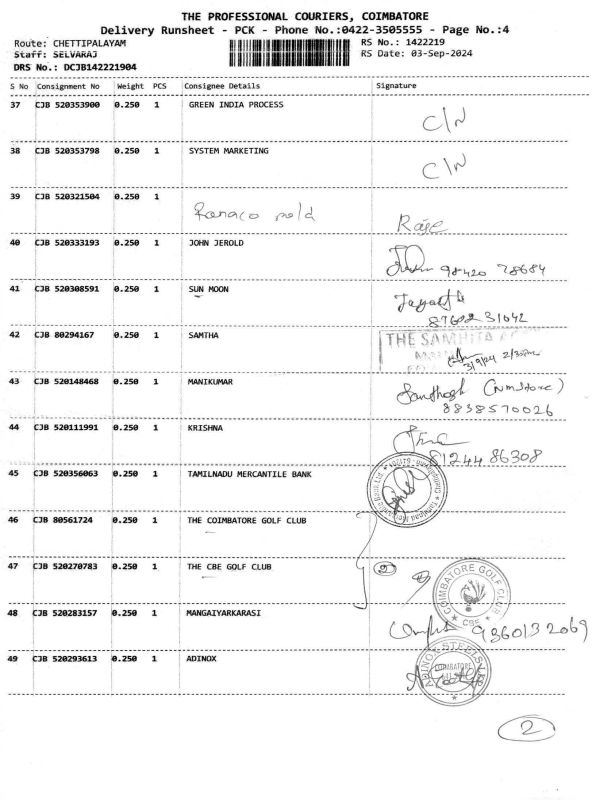 THE PROFESSIONAL COURIERS, COIMBATORE
Delivery Runsheet - PCK - Phone No.:0422-3505555 - Page No.:4
Route: CHETTIPALAYAM RS No.: 1422219
Staff: SELVARAJ RS Date: 03-Sep-2024
DRS No.: DCJB142221904
S No Consignment No Weight PCS Consignee Details Signature
37 CJB 520353900 0.250 1 GREEN INDIA PROCESS C/N
38 CJB 520353798 0.250 1 SYSTEM MARKETING C/N
39 CJB 520321504 0.250 1
40 CJB 520333193 0.250 1 JOHN JEROLD 98420 78684
41 CJB 520308591 0.250 1 SUN MOON
42 CJB 80294167 0.250 1 SAMTHA THE SAMHITA
3/9/24
43 CJB 520148468 0.250 1 MANIKUMAR
8838570026
44 CJB 520111991 0.250 1 KRISHNA
81244 86308
45 CJB 520356063 0.250 1 TAMILNADU MERCANTILE BANK
46 CJB 80561724 0.250 1 THE COIMBATORE GOLF CLUB
47 CJB 520270783 0.250 1 THE CBE GOLF CLUB COIMBATORE GOLF CLUB
CBE
48 CJB 520283157 0.250 1 MANGAIYARKARASI 9360132069
49 CJB 520293613 0.250 1 ADINOX ADINOX STEELS
COIMBATORE
2